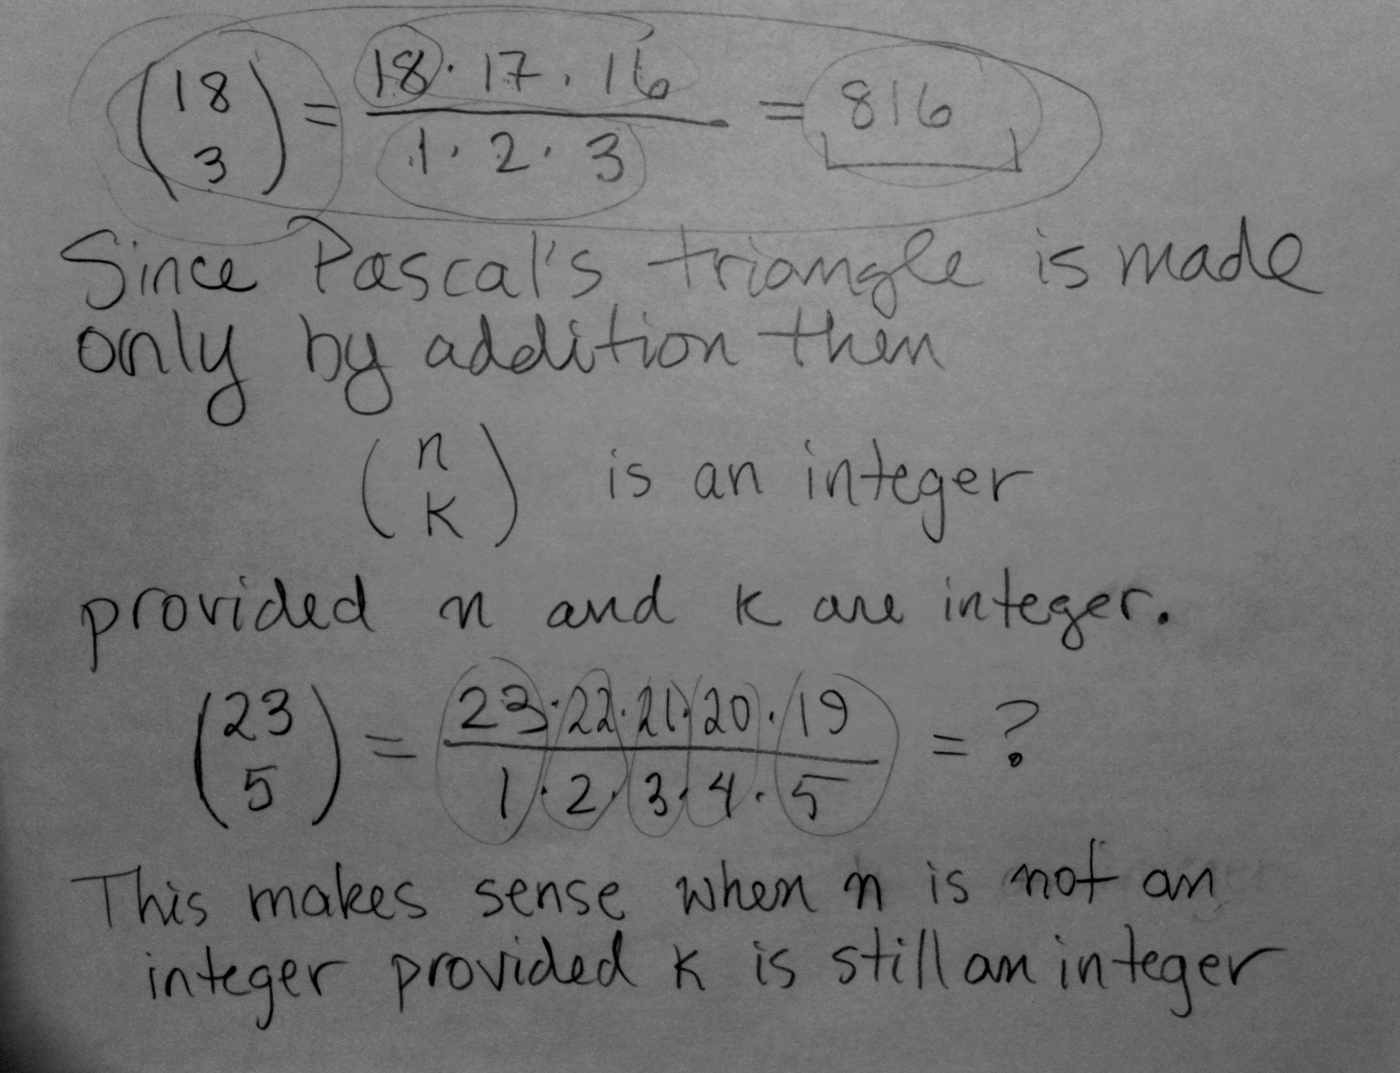 (18 3) = 18 · 17 · 16 / 1 · 2 · 3 = 816
Since Pascal's triangle is made
only by addition then
(n k) is an integer
provided n and k are integer.
(23 5) = 23 · 22 · 21 · 20 · 19 / 1 · 2 · 3 · 4 · 5 = ?
This makes sense when n is not an
integer provided k is still an integer